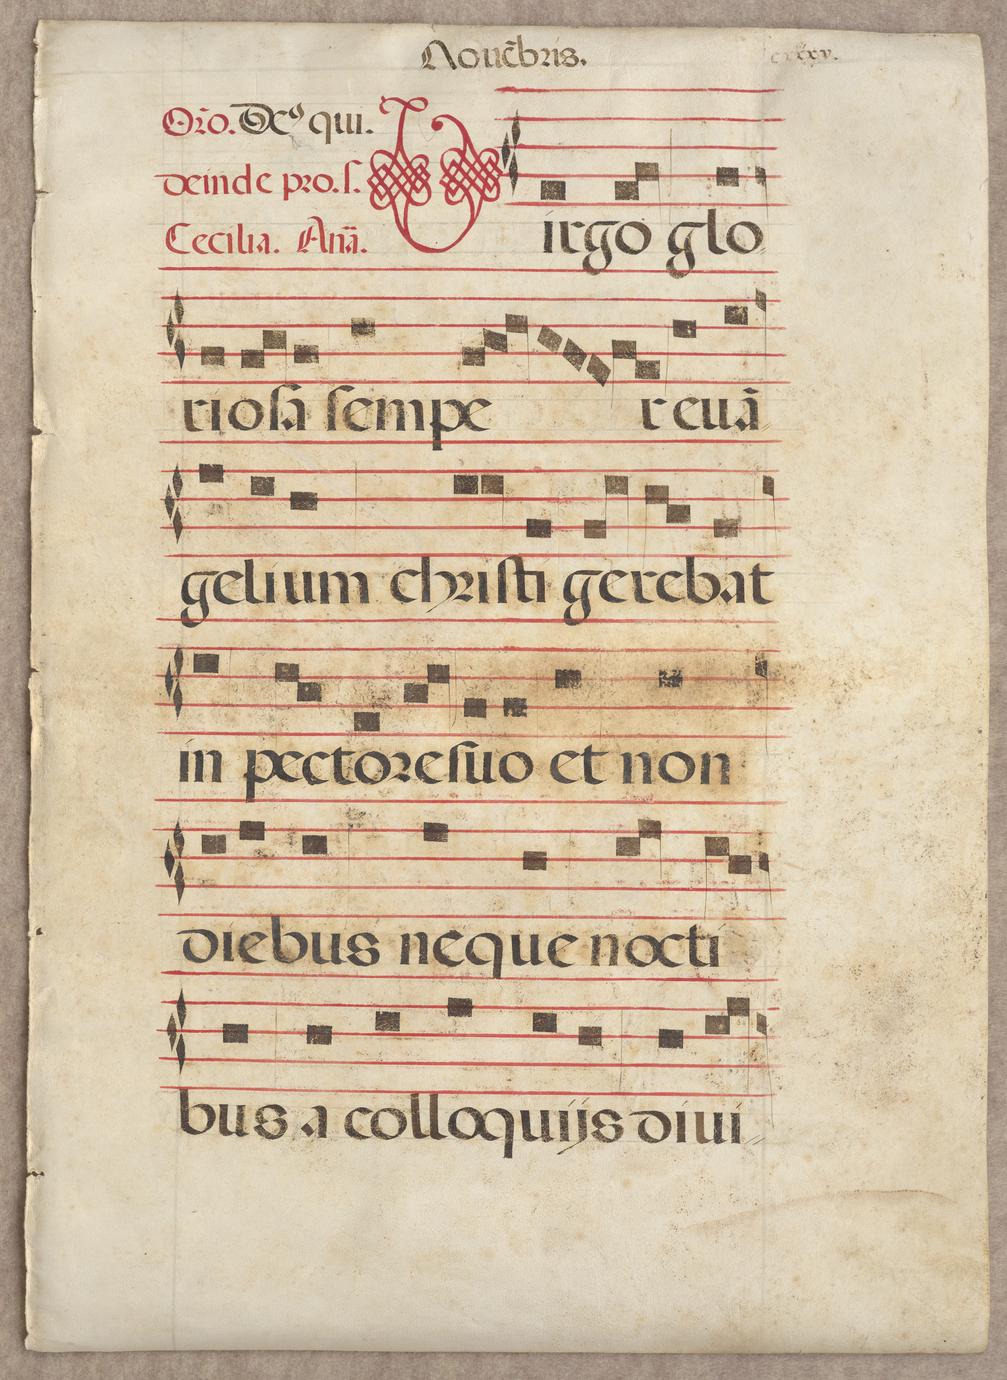 Nouẽbris.
cxxxv.
Orõ. Deꝰ qui.
deinde pro. s.
Cecilia. Anã.
Virgo glo
riosa sempe r euã
gelium christi gerebat
in pectore suo et non
diebus neque nocti
bus a colloquijs diui